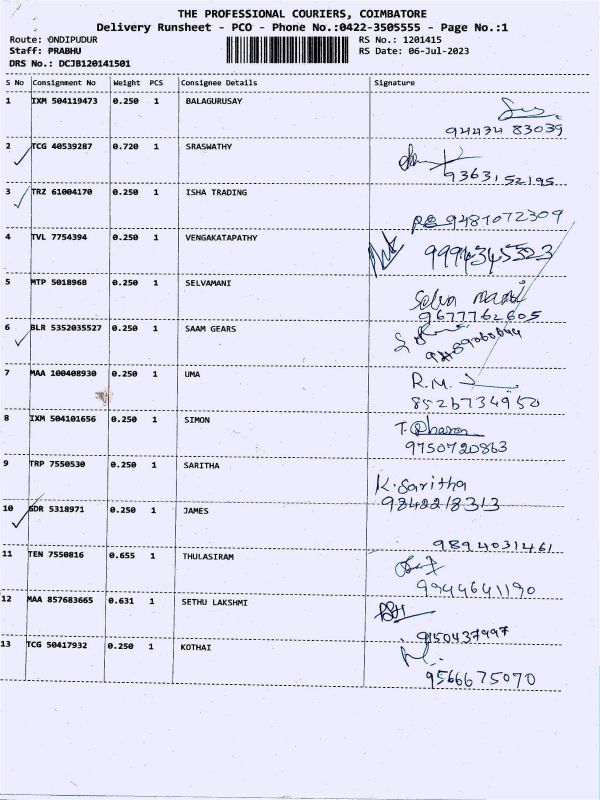 THE PROFESSIONAL COURIERS, COIMBATORE
Delivery Runsheet - PCO - Phone No.:0422-3505555 - Page No.:1
Route: ONDIPUDUR RS No.: 1201415
Staff: PRABHU RS Date: 06-Jul-2023
DRS No.: DCJB120141501
S No Consignment No Weight PCS Consignee Details Signature
1 IXM 504119473 0.250 1 BALAGURUSAY
94434 83039
2 TCG 40539287 0.720 1 SRASWATHY
9363152195
3 TRZ 61004170 0.250 1 ISHA TRADING
9487072309
4 TVL 7754394 0.250 1 VENGAKATAPATHY
9994345323
5 MTP 5018968 0.250 1 SELVAMANI
Selva mani
9677762605
6 BLR 5352035527 0.250 1 SAAM GEARS
7 MAA 100408930 0.250 1 UMA
R.M.
8526734950
8 IXM 504101656 0.250 1 SIMON
9750720863
9 TRP 7550530 0.250 1 SARITHA
K. Saritha
9842218313
10 GDR 5318971 0.250 1 JAMES
9894031461
11 TEN 7550816 0.655 1 THULASIRAM
9944641190
12 MAA 857683665 0.631 1 SETHU LAKSHMI
9150437997
13 TCG 50417932 0.250 1 KOTHAI
9566675070